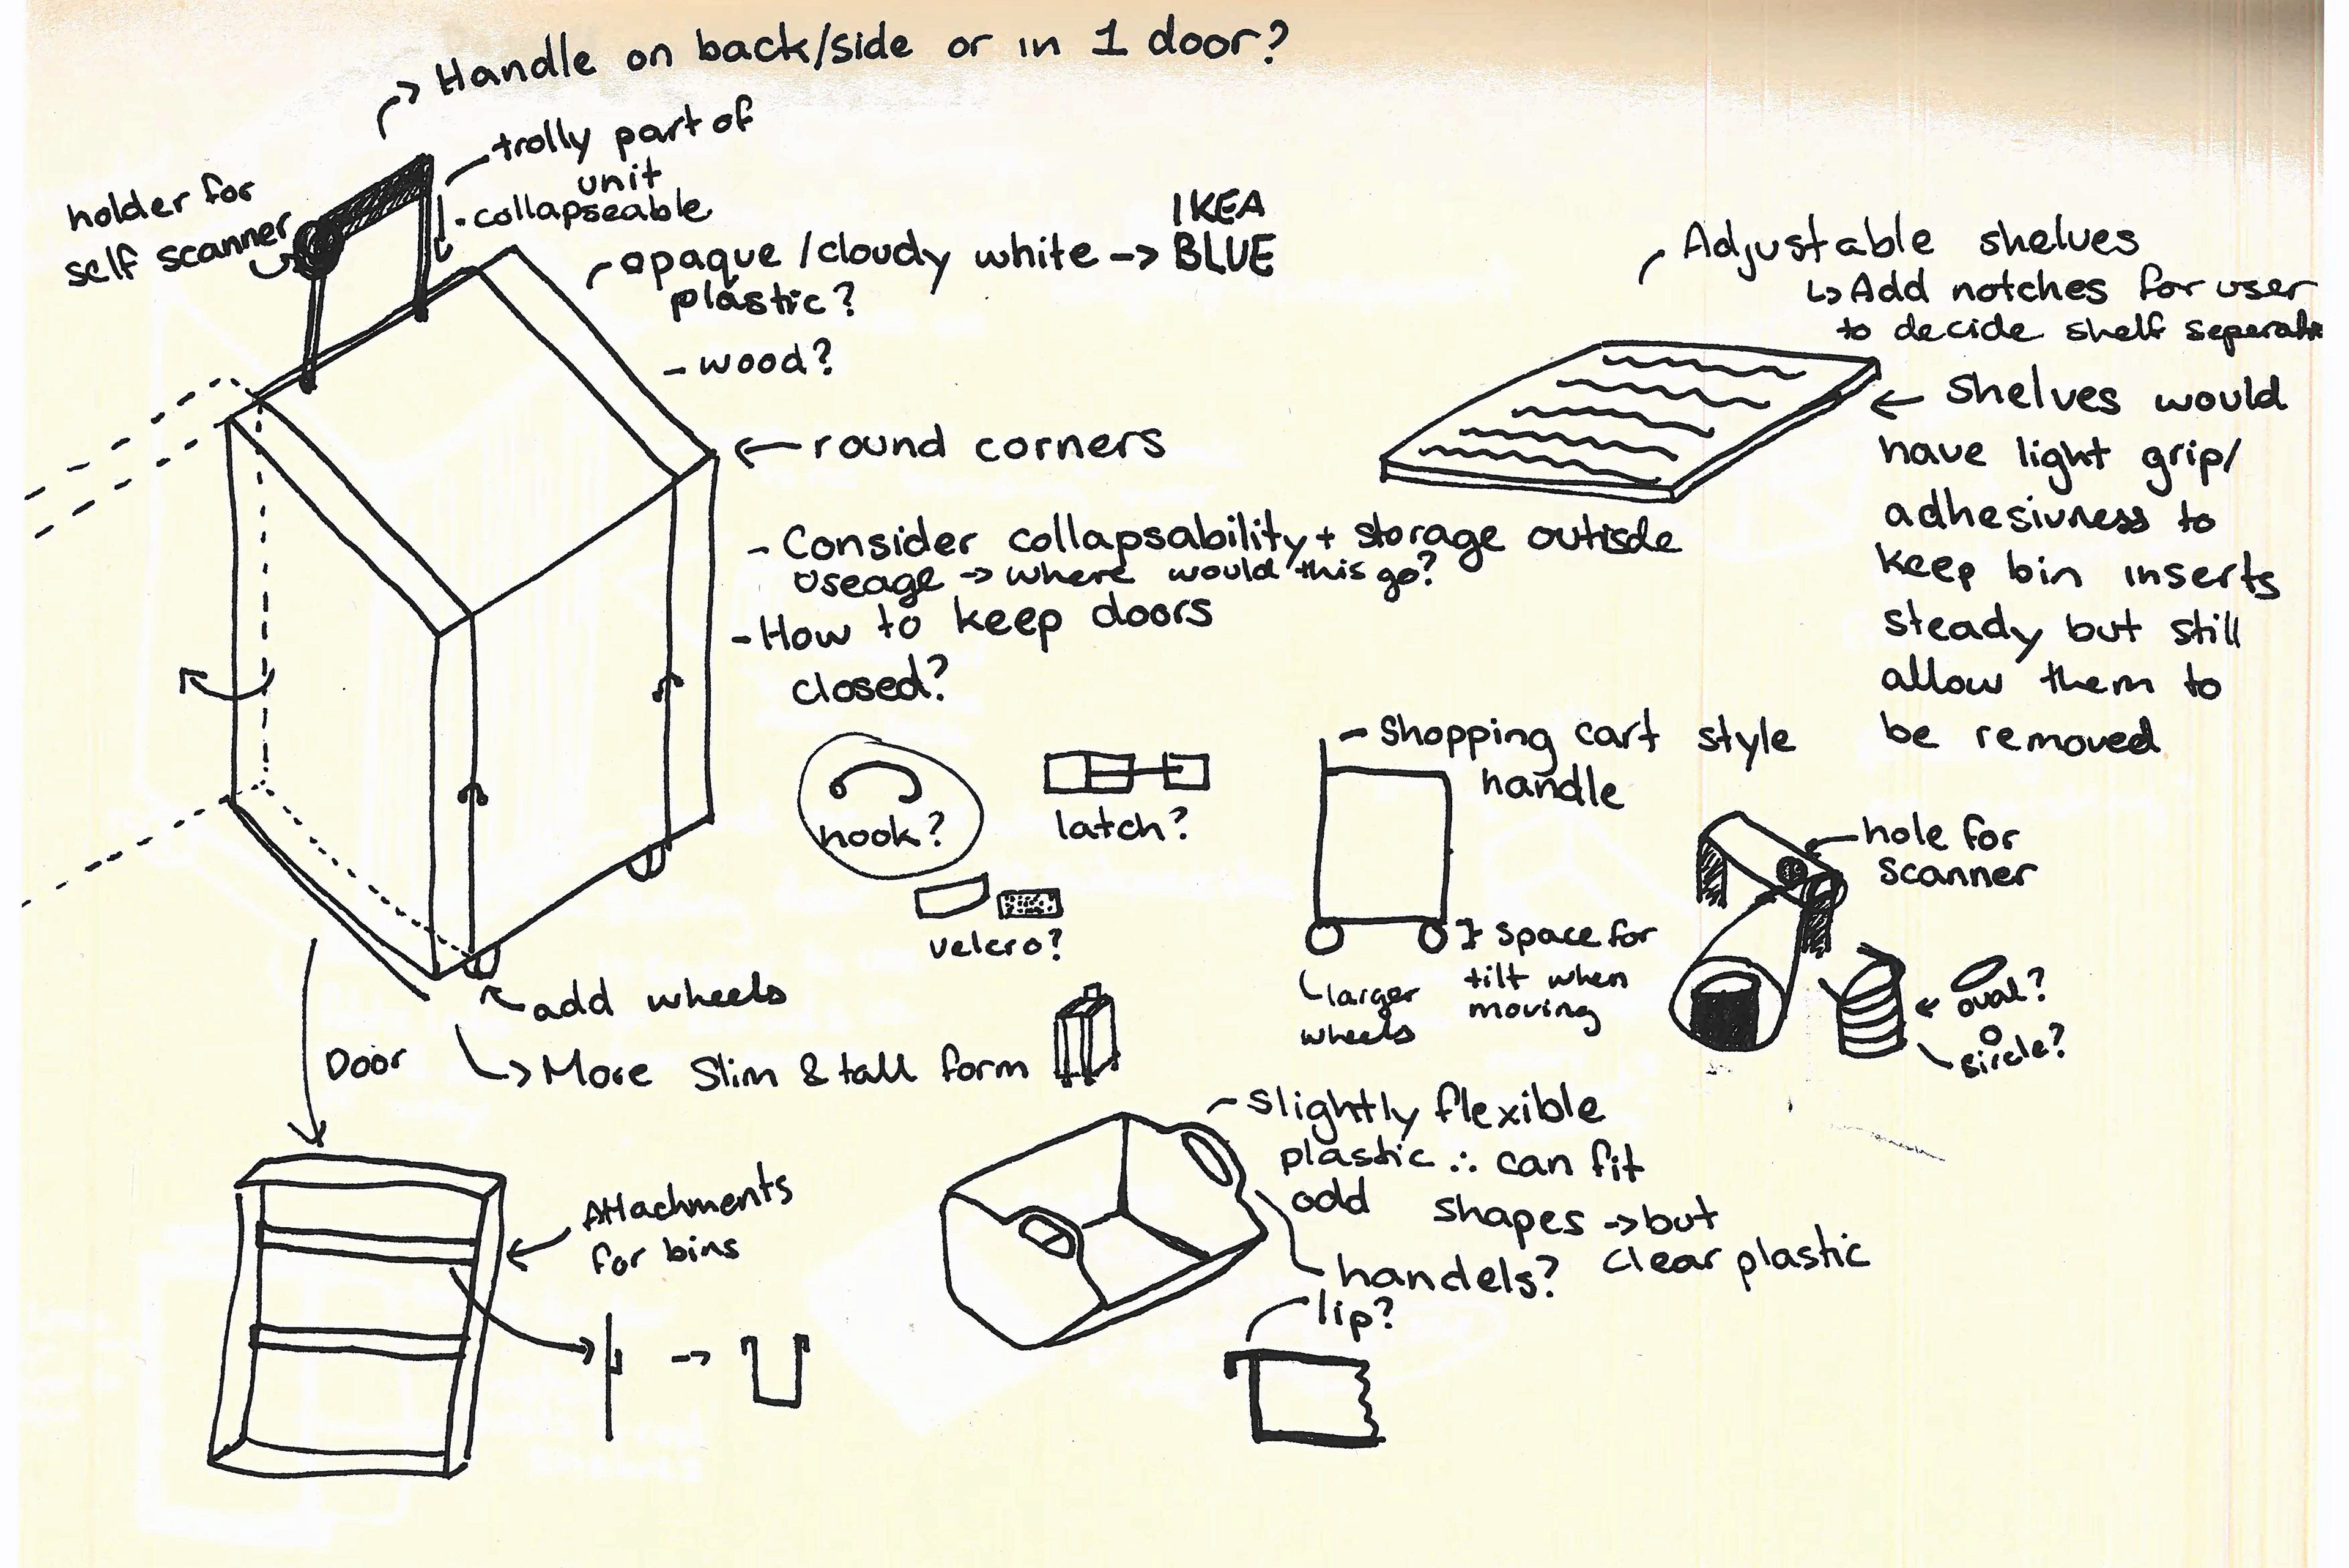 Handle on back/side or in 1 door?
trolly part of
unit
- collapseable
holder for
self scanner
opaque /cloudy white -> IKEA
BLUE
plastic?
- wood?
round corners
- Consider collapsability + storage outisde
useage -> where would this go?
- How to keep doors
closed?
hook?
latch?
velcro?
add wheels
-> More Slim & tall form
Door
Attachments
for bins
Adjustable shelves
↳ Add notches for user
to decide shelf
← Shelves would
have light grip/
adhesivness to
keep bin inserts
steady but still
allow them to
be removed
- Shopping cart style
handle
space for
tilt when
moving
larger
wheels
hole for
scanner
← oval?
circle?
slightly flexible
plastic ∴ can fit
odd shapes -> but
clear plastic
handels?
lip?